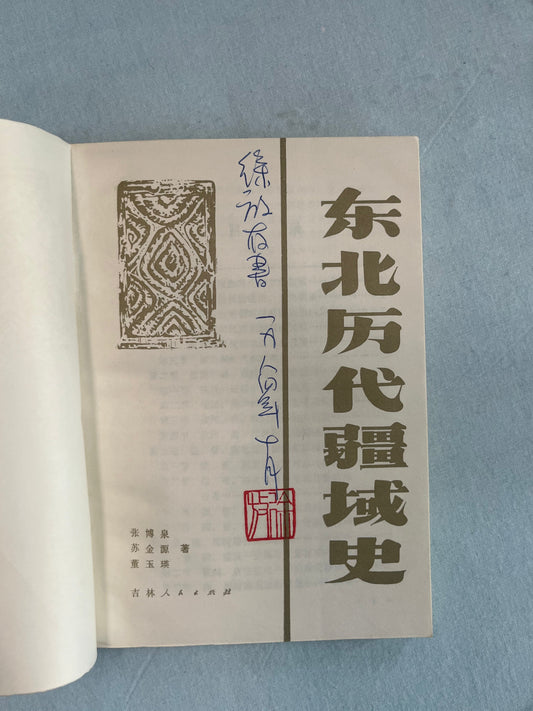 东北历代疆域史
徐放存書 一九八四年 十月
张博泉
苏金源 著
董玉瑛
吉林人民出版社